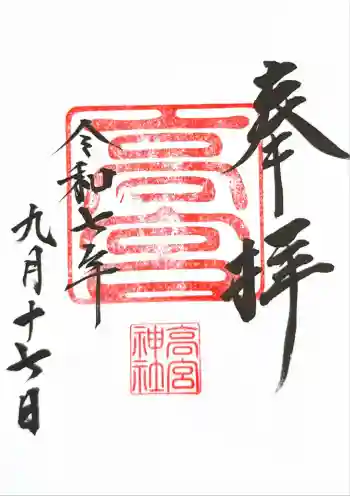 奉拝
高宮
令和七年
九月十七日
高宮
神社